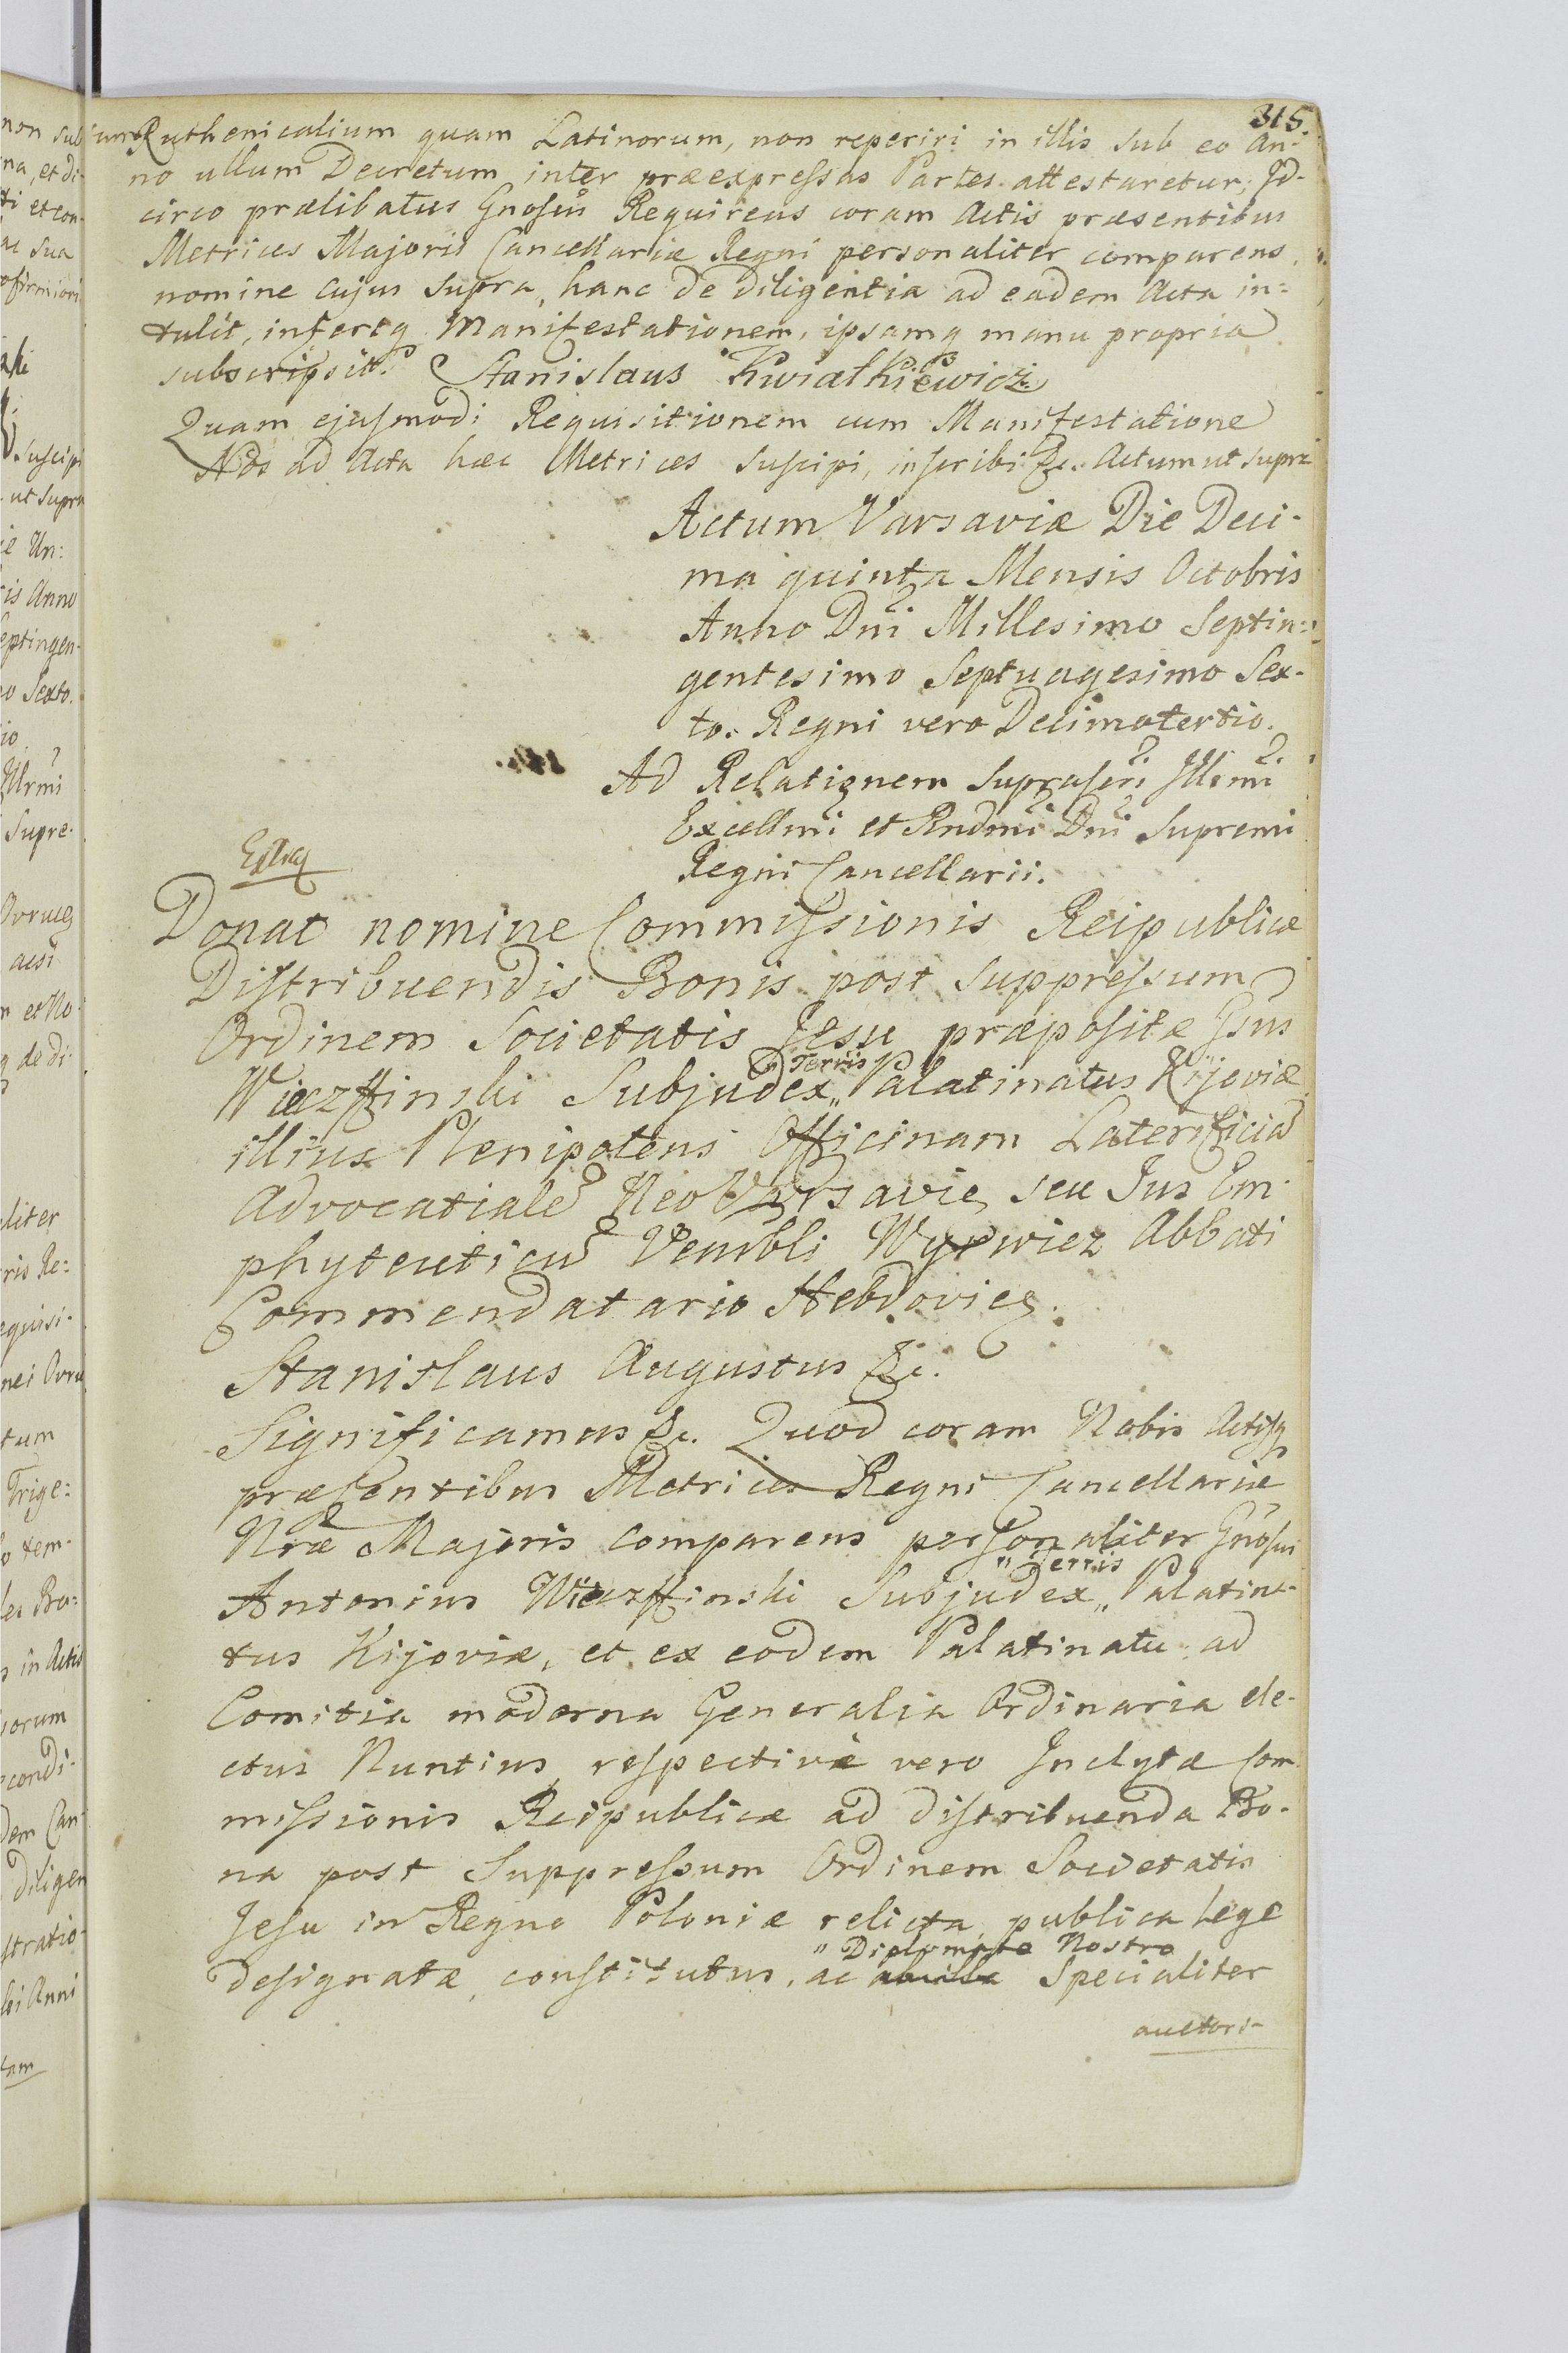 315.
Ruthenicalium quam Latinorum, non reperiri in illis sub eo An-
no ullum Decretum inter præexpressas Partes attestaretur; Id-
circo prælibatus Gnosus Requirens coram Actis præsentibus
Metrices Majoris Cancellariæ Regni personaliter comparens,
nomine cujus supra, hanc de diligentia ad eadem Acta in=
tulit, insertq Manifestationem, ipsamq manu propria
subscripsit. Stanislaus Kwiatkiewicz
Quam ejusmodi Requisitionem cum Manifestatione
Nos ad Acta hæc Metrices suscipi, inscribi &c. Actum ut supra
Actum Varsaviæ Die Deci-
ma quinta Mensis Octobris
Anno Dni Millesimo Septin=
gentesimo Septuagesimo Sex-
to. Regni vero Decimotertio.
Ad Relationem suprascri Illmi
Excellmi et Rndmi Dni Supremi
Regni Cancellarii.
Donat nomine Commissionis Reipublicæ
Distribuendis Bonis post suppressum
Ordinem Societatis Jesu præpositæ Gsus
Wieczffinski Subjudex „Terris Palatinatus Kijoviæ
illius Plenipotens Officinam Laterificia
Advocatiale Neo Varsavie, seu Jus Em-
phyteuticu Venrbli Wyrwicz Abbati
Commendatario Hebdovieg.
Stanislaus Augustus &c.
Significamus &c. Quod coram Nobis Actisq
præsentibus Metrices Regni Cancellariæ
Nræ Majoris comparens personaliter Gnosus
Antonius Wieczffinski Subjudex „Terris Palatina-
tus Kijoviæ, et ex eodem Palatinatu ad
Comitia moderna Generalia Ordinaria ele-
ctus Nuntius, respective vero Inclytæ Com
missionis Reipublicæ ad distribuenda Bo-
na post Suppressum Ordinem Societatis
Jesu in Regno Poloniæ relicta, publica Lege
designatæ, constitutus, ac „Diplomate Nostro specialiter
auctori-